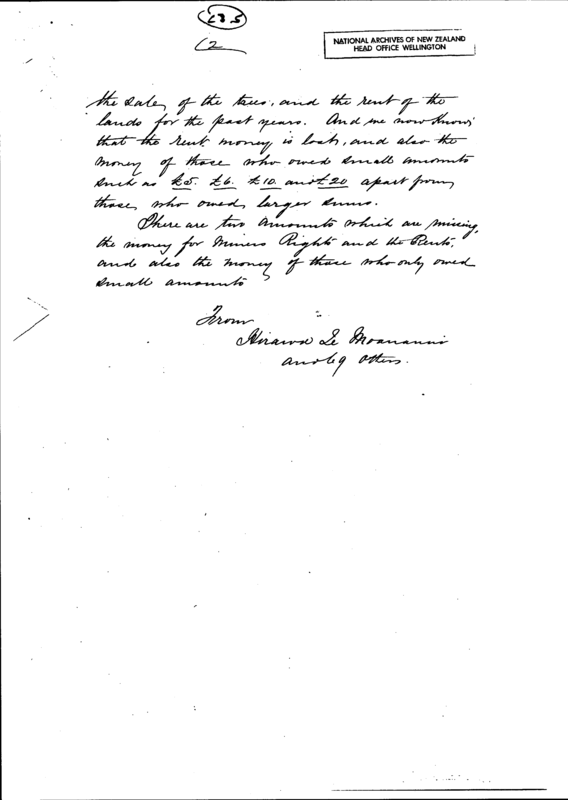 235
2
NATIONAL ARCHIVES OF NEW ZEALAND
HEAD OFFICE WELLINGTON
the sale, of the trees, and the rent of the
lands for the past years. And we now know,
that the rent money is lost, and also the
money of those who owed small amounts
such as £5. £6. £10. and £20 apart from,
those, who owed, larger sums.
There are two amounts which are missing,
the money for Miners Rights and the Rents,
and also the money of those who only owed
small amounts
From
Hirawa Te Moananui
and 69 others.